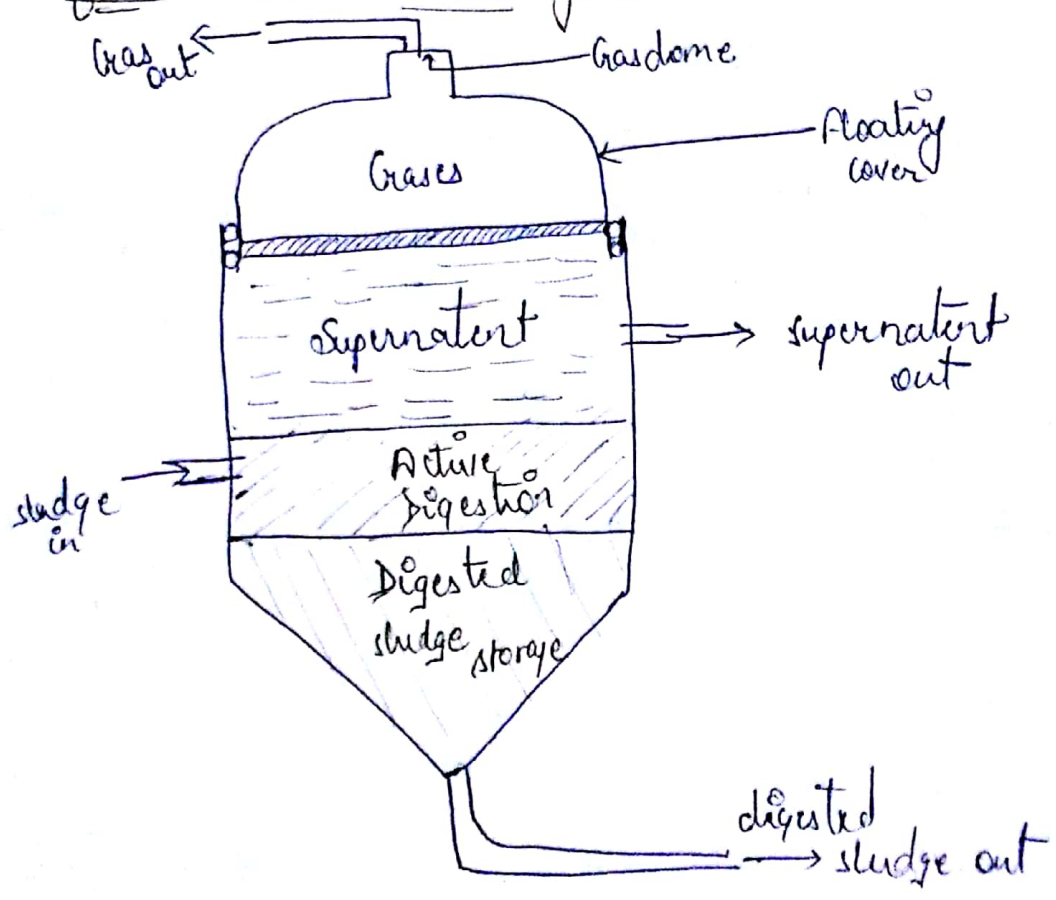 Gas
out
Gasdome
Floating
cover
Gases
Supernatent
supernatent
out
Active
Digestion
sludge
in
Digested
sludge
storage
digested
sludge out